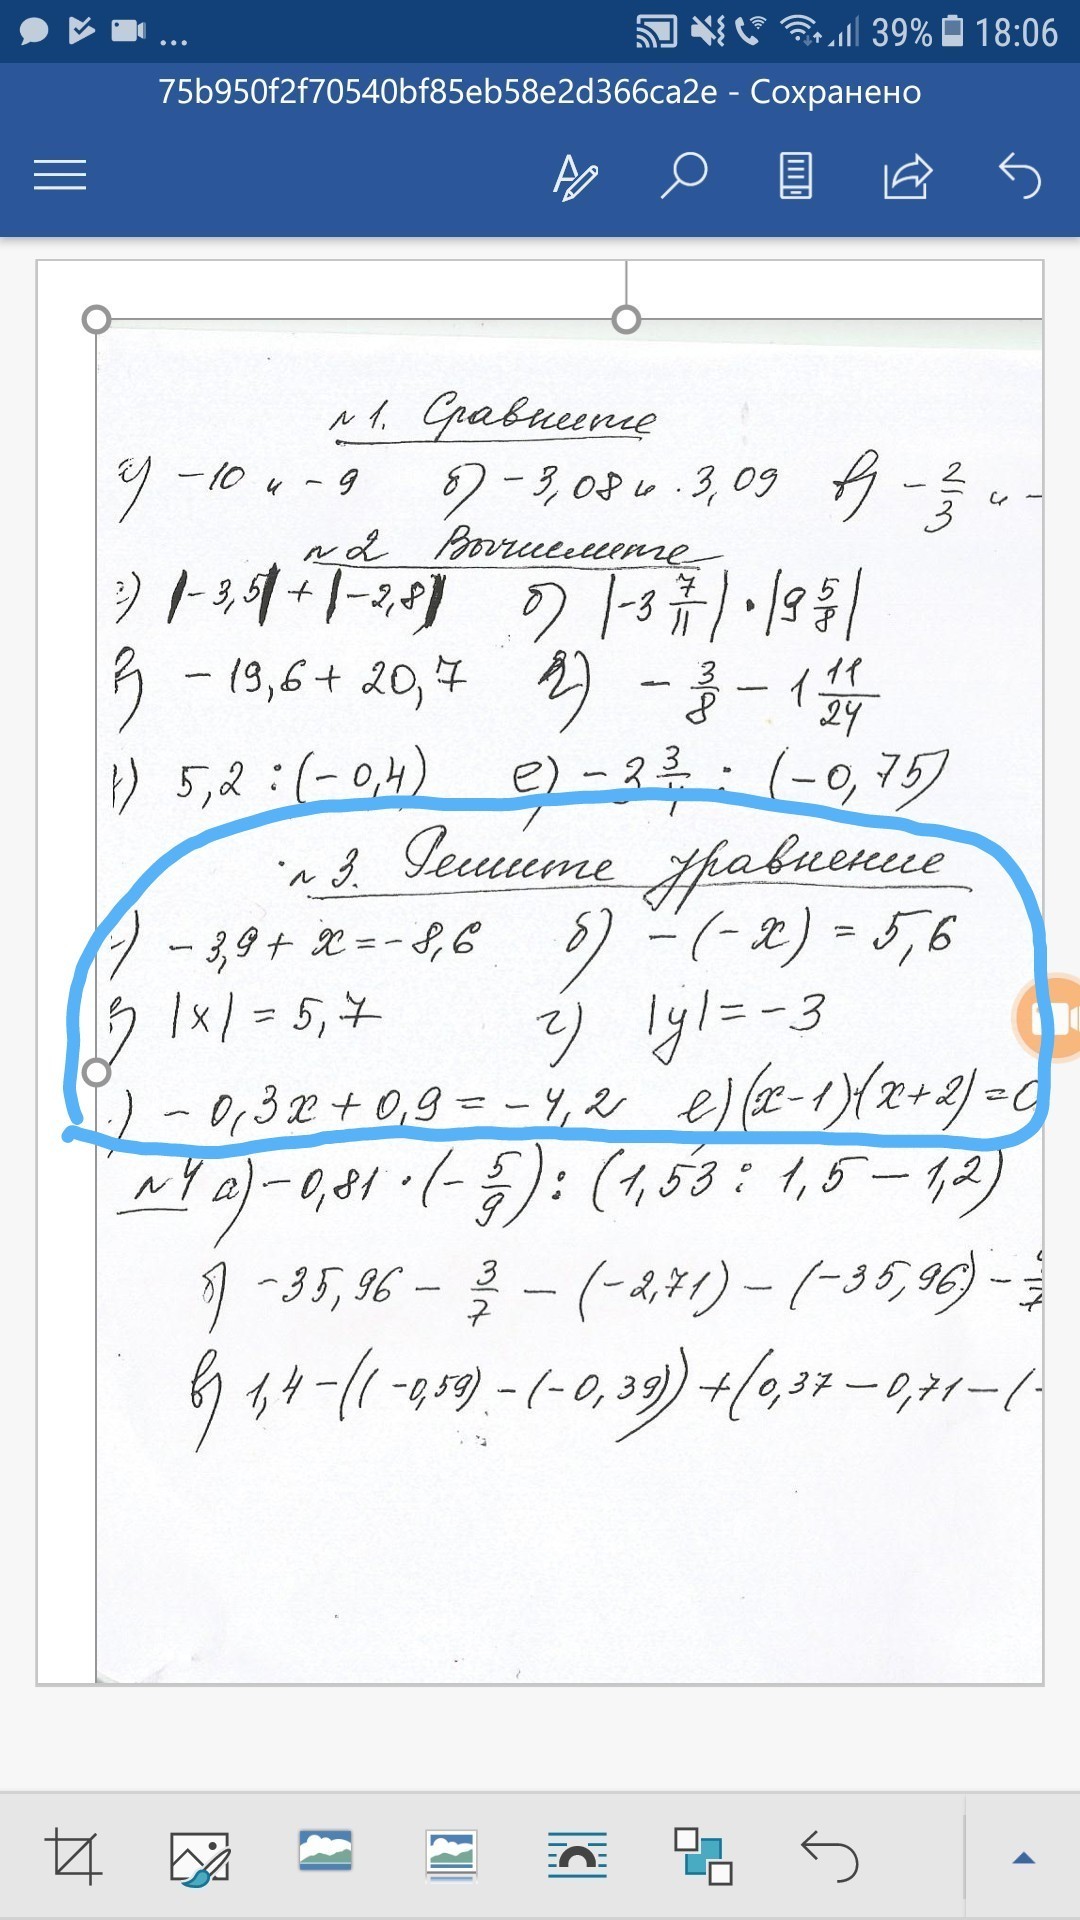 39% 18:06
75b950f2f70540bf85eb58e2d366ca2e - Сохранено
№1. Сравните
а) -10 и -9 б) -3,08 и 3,09 в) -2/3 и -
№2 Вычислите
|-3,5|+|-2,8| б) |-3 7/11|·|9 5/8|
в) -19,6+20,7 г) -3/8-1 11/24
) 5,2:(-0,4) е) -2 3/4:(-0,75)
№3. Решите уравнение
) -3,9+x=-8,6 б) -(-x)=5,6
в) |x|=5,7 г) |y|=-3
) -0,3x+0,9=-4,2 е)(x-1)·(x+2)=0
№4 а)-0,81·(-5/9):(1,53:1,5-1,2)
б) -35,96-3/7-(-2,71)-(-35,96)-
в) 1,4-((-0,59)-(-0,39))+(0,37-0,71-(-